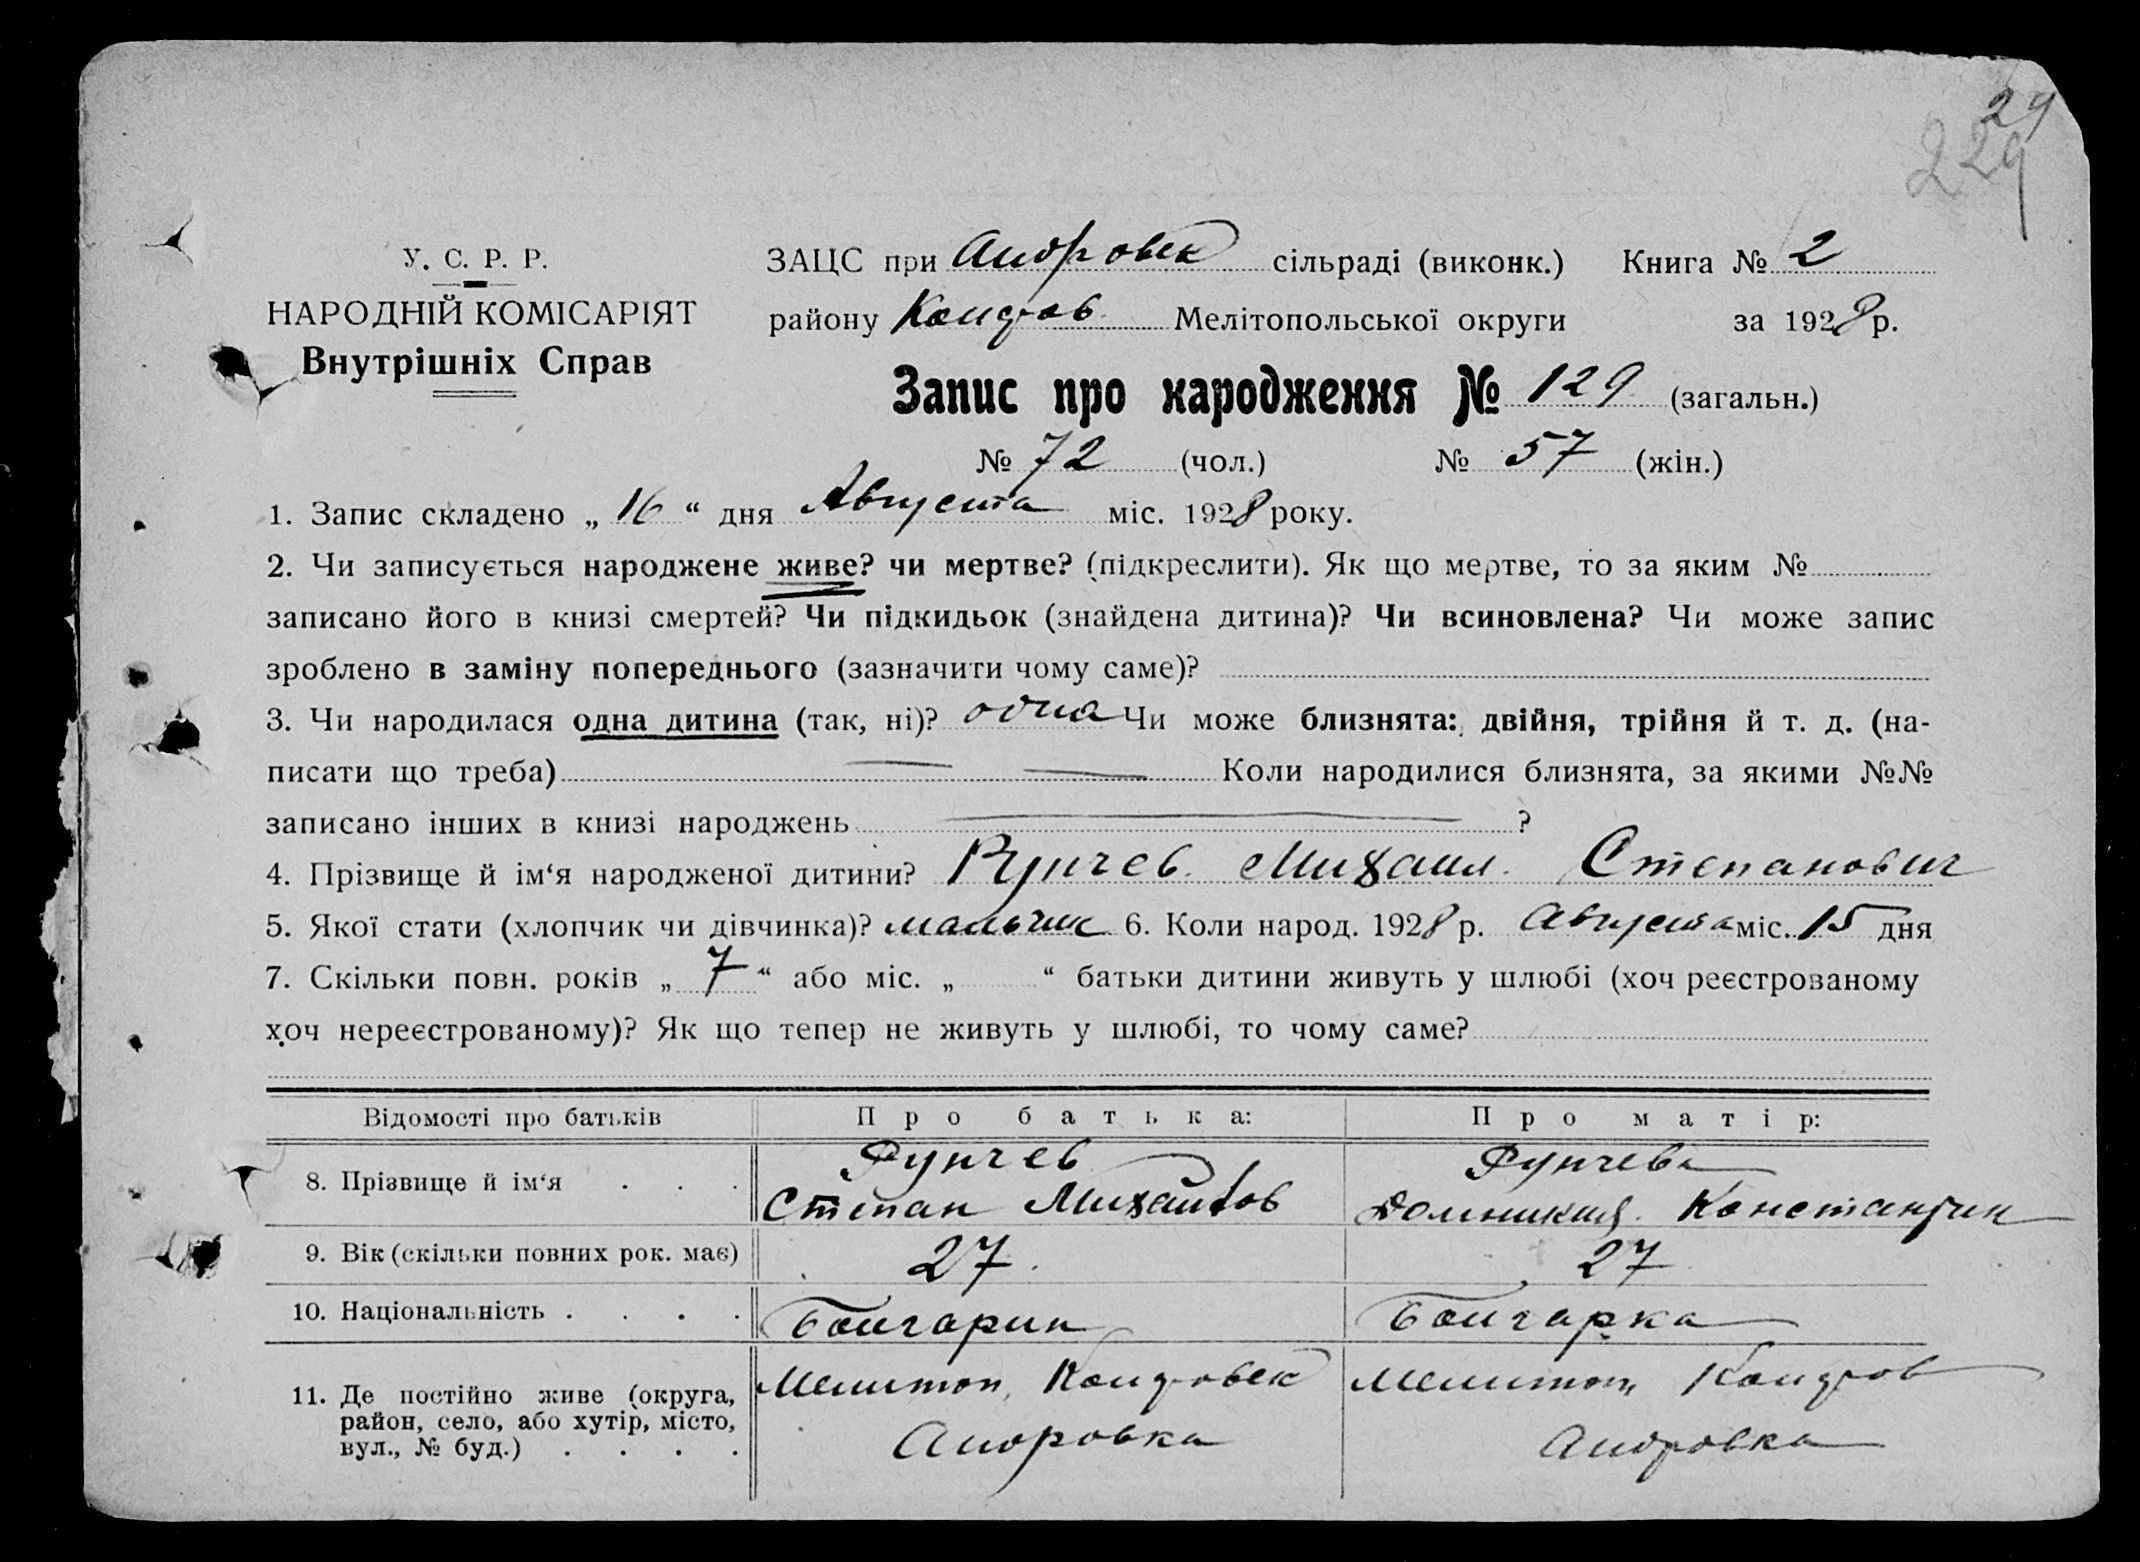 29
229
У. С. Р. Р.
НАРОДНІЙ КОМІСАРІЯТ
Внутрішніх Справ
ЗАЦС при Андровск сільраді (виконк.) Книга № 2
району Коларов Мелітопольської округи за 1928 р.
Запис про народження № 129 (загальн.)
№ 72 (чол.) № 57 (жін.)
1. Запис складено „ 16 “ дня Августа міс. 1928 року.
2. Чи записується народжене живе? чи мертве? (підкреслити). Як що мертве, то за яким №
записано його в книзі смертей? Чи підкидьок (знайдена дитина)? Чи всиновлена? Чи може запис
зроблено в заміну попереднього (зазначити чому саме)?
3. Чи народилася одна дитина (так, ні)? одна Чи може близнята: двійня, трійня й т. д. (на-
писати що треба) Коли народилися близнята, за якими №№
записано інших в книзі народжень ?
4. Прізвище й ім‘я народженої дитини? Рупчев Михаил Степанович
5. Якої стати (хлопчик чи дівчинка)? мальчик 6. Коли народ. 1928 р. Августа міс. 15 дня
7. Скільки повн. років „ 7 “ або міс. „ “ батьки дитини живуть у шлюбі (хоч реєстрованому
хоч нереєстрованому)? Як що тепер не живуть у шлюбі, то чому саме?
Відомості про батьків Про батька: Про матір:
8. Прізвище й ім‘я . . . Рупчев Степан Михайлов Рупчева Домникия Константин
9. Вік (скільки повних рок. має) 27. 27
10. Національність . . . . Болгарин Болгарка
11. Де постійно живе (округа, Мелитоп, Мелитоп,
район, село, або хутір, місто, Андровка Андровка
вул., № буд.) . . . .